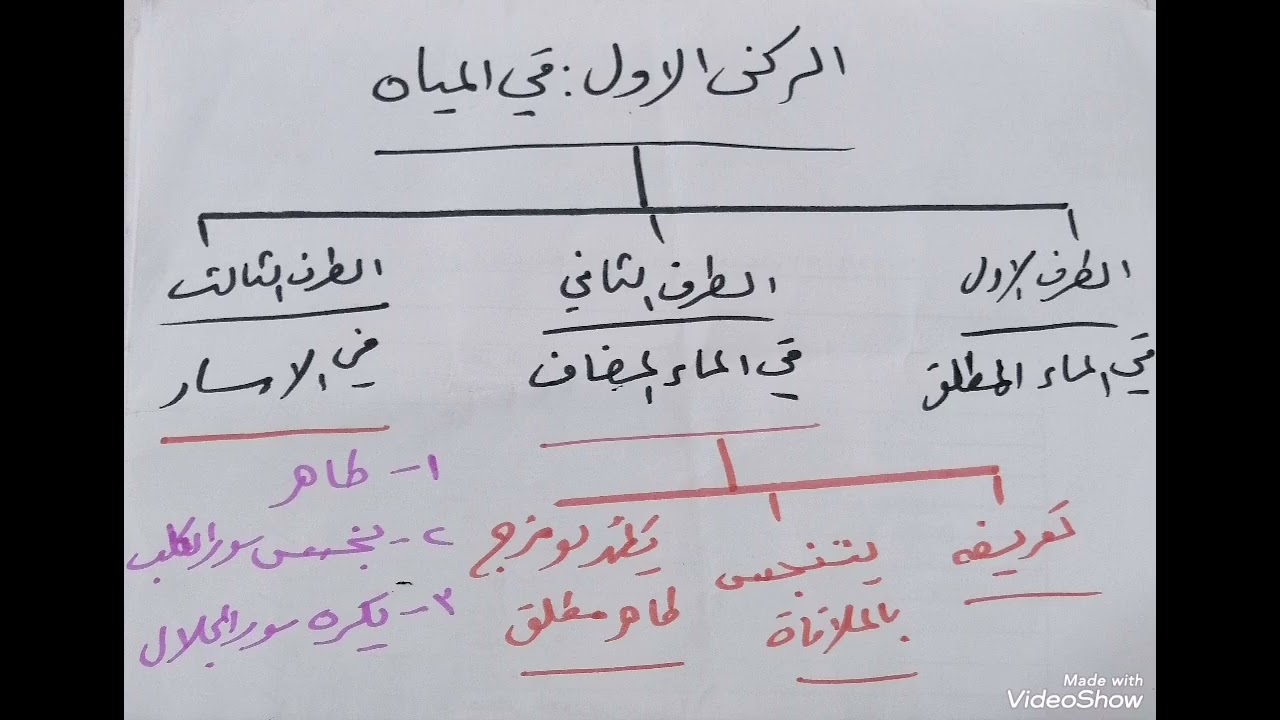 الركن الاول : في المياه
الطرف الاول
في الماء المطلق
الطرف الثاني
في الماء المضاف
الطرف الثالث
في الاسار
تعريفه
يتنجس
بالملاقاة
يَطهُر لو مزج
طاهر مطلق
١- طاهر
٢- نجس سور الكلب
٣- يكره سور الجلال
Made with
VideoShow